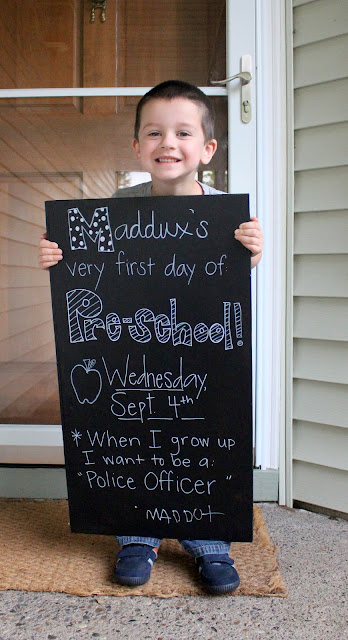 Maddux's
very first day of:
Pre-school!
Wednesday,
Sept. 4th
* When I grow up
I want to be a:
"Police Officer"
MADDUX